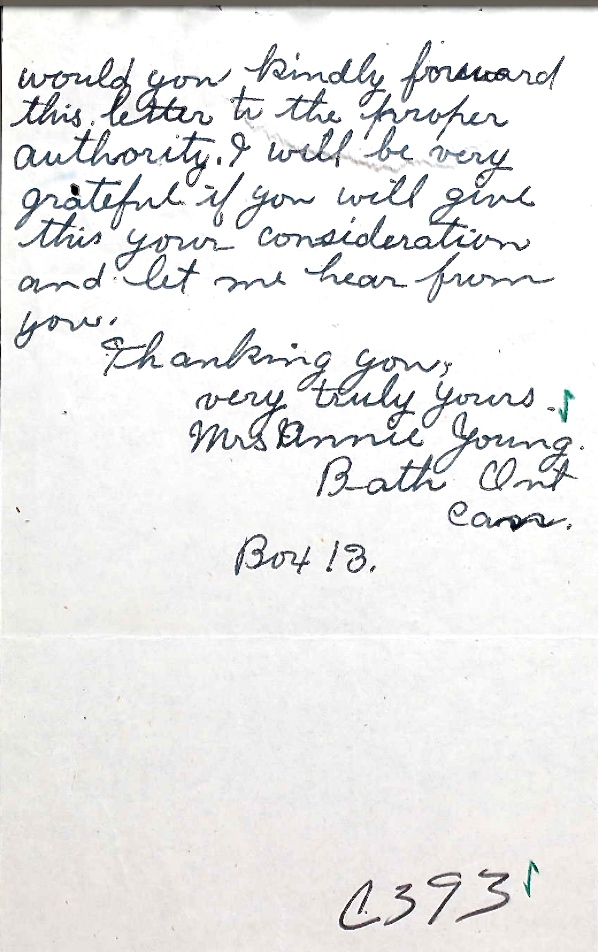 would you kindly forward
this letter to the proper
authority. I will be very
grateful if you will give
this your consideration
and let me hear from
you.
Thanking you,
very truly yours.
Mrs Annie Young.
Bath Ont
Can.
Box 13.
C393